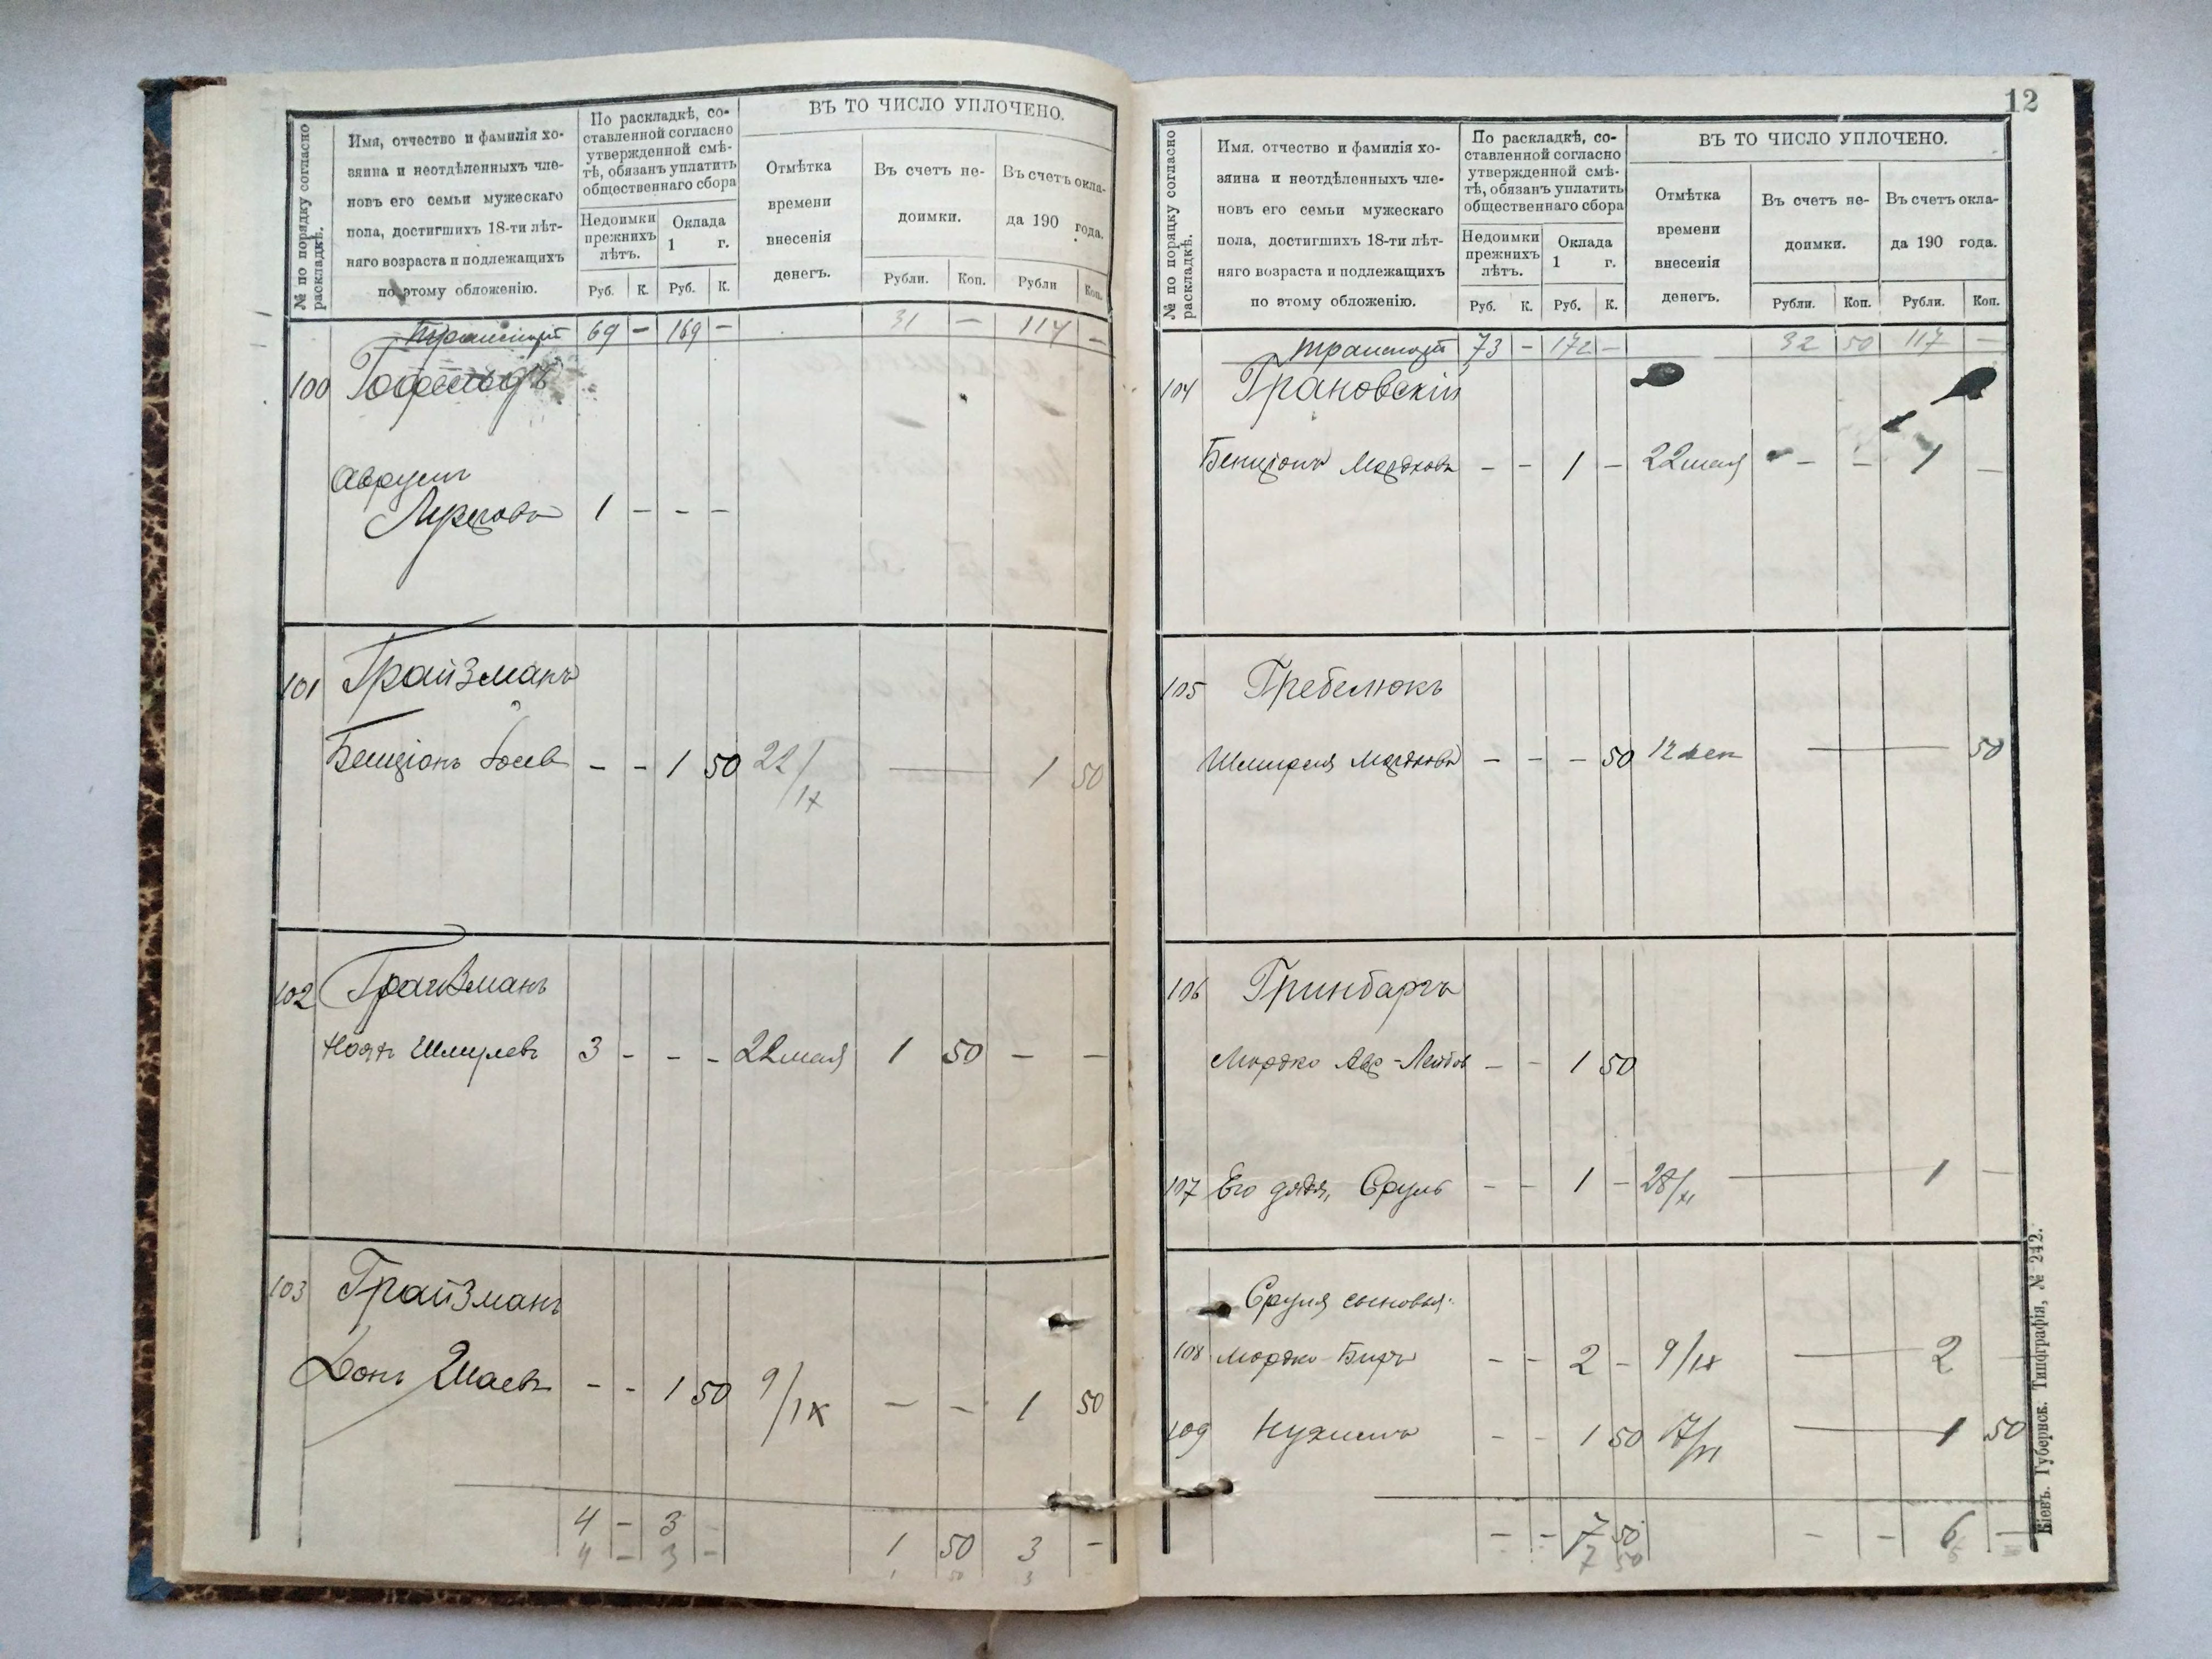 № по порядку согласно
раскладкѣ.
Имя, отчество и фамилія хо-
зяина и неотдѣленныхъ чле-
новъ его семьи мужескаго
пола, достигшихъ 18-ти лѣт-
няго возраста и подлежащихъ
по этому обложенію.
По раскладкѣ, со-
ставленной согласно
утвержденной смѣ-
тѣ, обязанъ уплатить
общественнаго сбора
Недоимки
прежнихъ
лѣтъ.
Оклада
1 г.
Руб. К. Руб. К.
ВЪ ТО ЧИСЛО УПЛОЧЕНО.
Отмѣтка
времени
внесенія
денегъ.
Въ счетъ не-
доимки.
Въ счетъ окла-
да 190 года.
Рубли. Коп. Рубли Коп.
транспортъ 69 - 169 - 31 - 114 -
100
Аврумъ
1 - - -
101 Грайзманъ
Бенціонъ Іосев - - 1 50 22/IX 1 50
102 Грайзманъ
Шмулевъ 3 - - - 22 мая 1 50 - -
103 Грайзманъ
Шаевъ - - 1 50 9/IX - - 1 50
4 - 3 - 1 50 3 -
4 - 3 - 1 50 3
12
№ по порядку согласно
раскладкѣ.
Имя. отчество и фамилія хо-
зяина и неотдѣленныхъ чле-
новъ его семьи мужескаго
пола, достигшихъ 18-ти лѣт-
няго возраста и подлежащихъ
по этому обложенію.
По раскладкѣ, со-
ставленной согласно
утвержденной смѣ-
тѣ, обязанъ уплатить
общественнаго сбора
Недоимки
прежнихъ
лѣтъ.
Оклада
1 г.
Руб. К. Руб. К.
ВЪ ТО ЧИСЛО УПЛОЧЕНО.
Отмѣтка
времени
внесенія
денегъ.
Въ счетъ не-
доимки.
Въ счетъ окла-
да 190 года.
Рубли. Коп. Рубли. Коп.
транспортъ 73 - 172 - 32 50 117 -
104 Грановскій
Бенціонъ Мордковъ - - 1 - 22 мая - - 1 -
105 Гребелюкъ
Мордковъ - - - 50 12 50
106 Гринбаргъ
Мордко Авр-Лейбов - - 1 50
107 Его дядя, Сруль - - 1 - 28/XI 1 -
Сруля сыновья:
108 Мордко-Беръ - - 2 - 9/IX 2
109 Нухимъ - - 1 50 17/XI 1 50
- - 7 50 - - 6 -
7 50 6
Кіевъ. Губернск. Типографія, № 242.